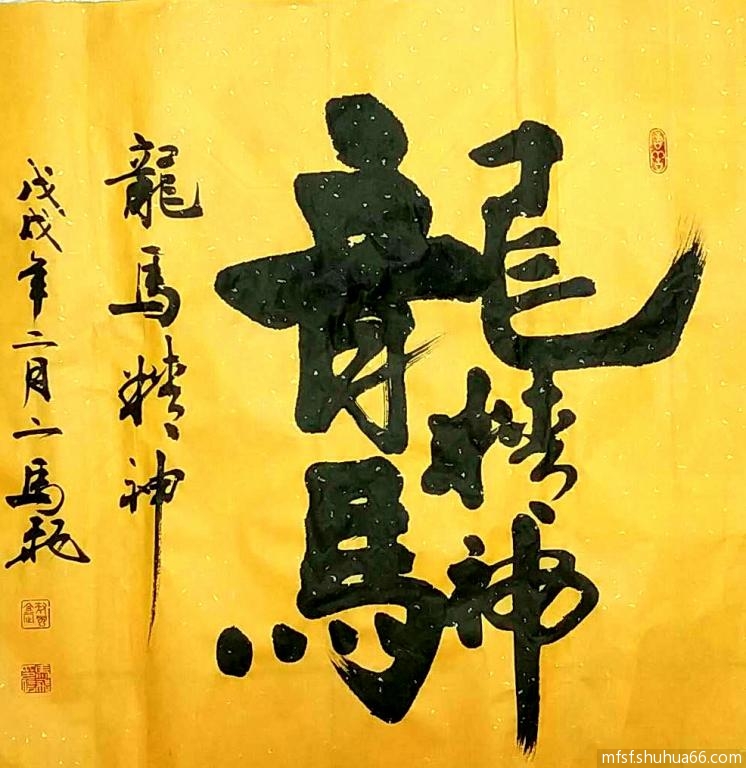 龍馬精神
龍馬精神
戊戌年二月二馬
mfsf.shuhua66.com